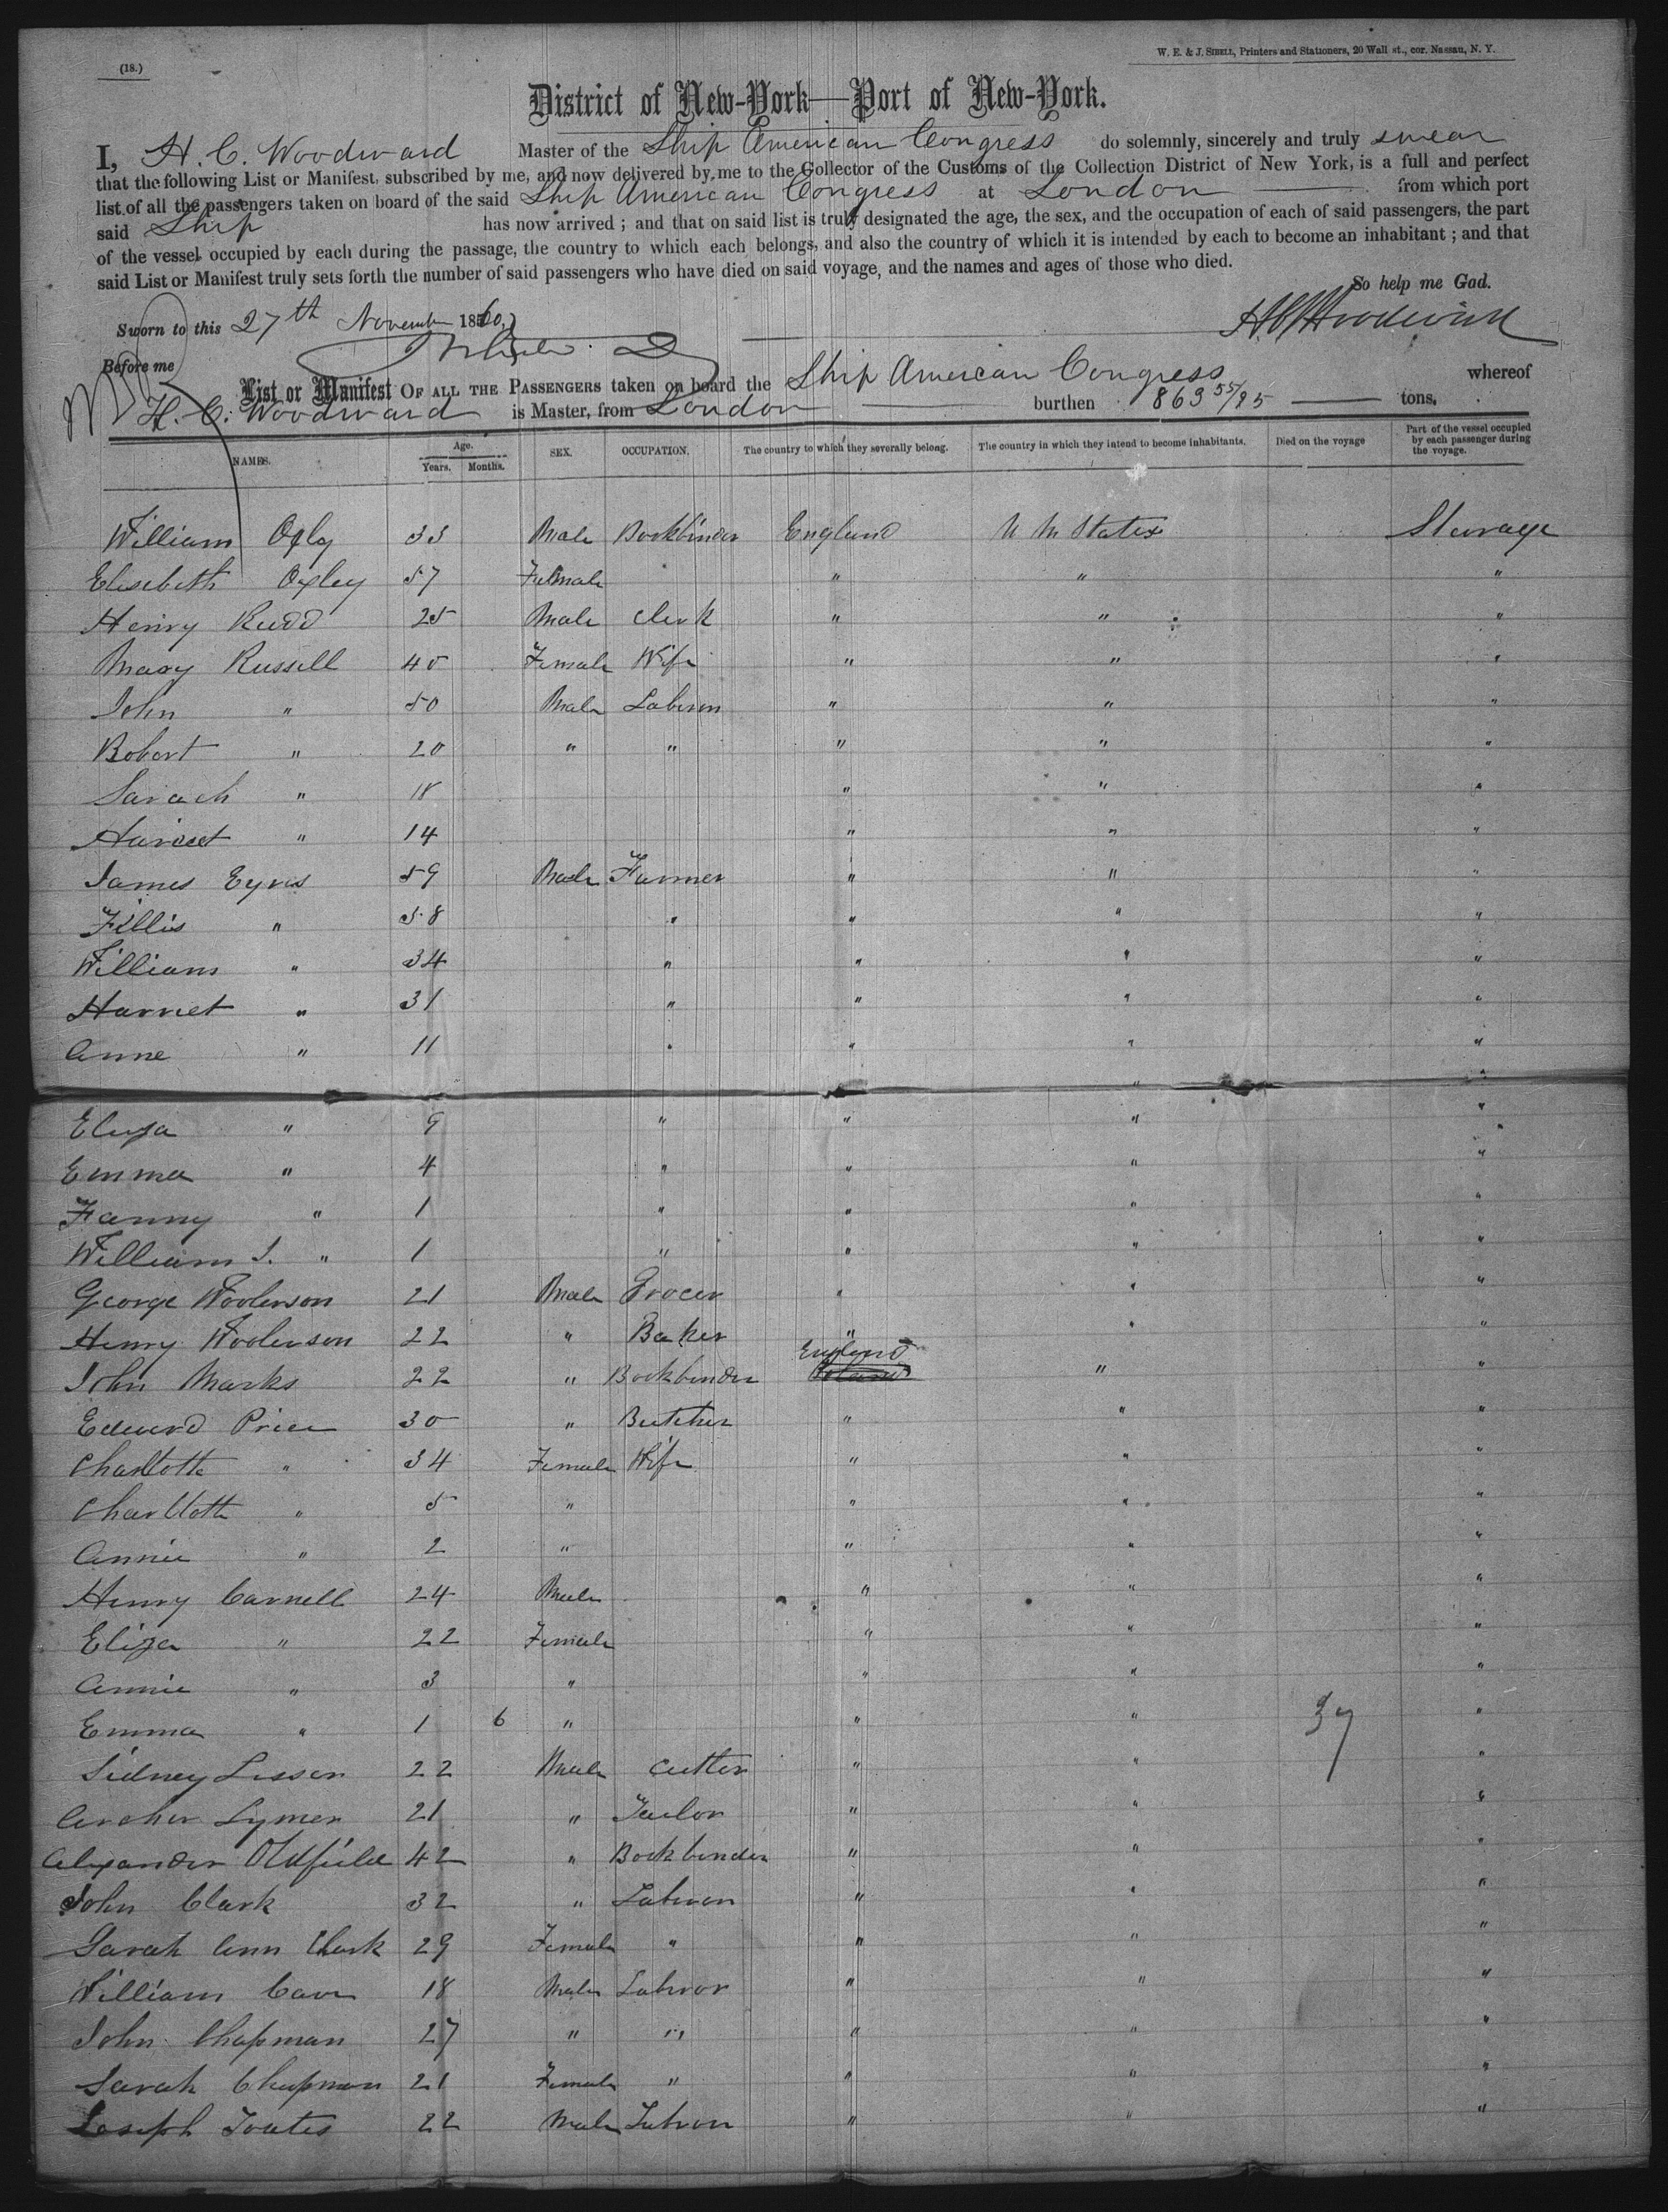 (18.)
W. E. & J. SIBELL, Printers and Stationers, 20 Wall st., cor. Nassau, N. Y.
District of New-York—Port of New-York.
I, H. C. Woodward Master of the Ship American Congress do solemnly, sincerely and truly swear
that the following List or Manifest, subscribed by me, and now delivered by me to the Collector of the Customs of the Collection District of New York, is a full and perfect
list of all the passengers taken on board of the said Ship American Congress at London from which port
said Ship has now arrived ; and that on said list is truly designated the age, the sex, and the occupation of each of said passengers, the part
of the vessel occupied by each during the passage, the country to which each belongs, and also the country of which it is intended by each to become an inhabitant ; and that
said List or Manifest truly sets forth the number of said passengers who have died on said voyage, and the names and ages of those who died.
So help me God.
Sworn to this 27th November 1860,
H C Woodward
Before me
List or Manifest OF ALL THE PASSENGERS taken on board the Ship American Congress whereof
H. C. Woodward is Master, from London burthen 863 55/95 tons.
NAMES. Age. Years. Months. SEX. OCCUPATION. The country to which they severally belong. The country in which they intend to become inhabitants. Died on the voyage Part of the vessel occupied by each passenger during the voyage.
William Oxly 33 Male Bookbinder England States Sterrage
Elisebeth Oxley 57 Female " " "
Henry Rudd 25 Male Clerk " " "
Mary Russell 40 Female Wife " " "
John " 50 Male Laberon " " "
Robert " 20 " " " " "
Sarach " 18 " " "
Harieet " 14 " " "
James Eyres 59 Male Farmer " " "
Fillis " 58 " " " "
William " 34 " " " "
Harriet " 31 " " " "
Anne " 11 " " " "
" "
Eliza " 9 " " " "
Emma " 4 " " " "
Fanny " 1 " " " "
William J. " 1 " " " "
George Woolerson 21 Male Grocer " " "
Henry Woolerson 22 " Baker " " "
John Marks 22 " Bookbinder England " "
Edward Price 30 " Butcher " " "
Charllotte " 34 Female Wife " " "
Charllotte " 5 " " " "
Annie " 2 " " " "
Henry Carnell 24 Male " " "
Eliza " 22 Female " " "
Annie " 3 " " " "
Emma " 1 6 " " " 37 "
Sidney Lisser 22 Male Cutter " " "
Archer Lymer 21 " Tailor " " "
Alexander Oldfield 42 " Bookbinder " " "
John Clark 32 " Laberon " " "
Sarah Ann Clark 29 Female " " " "
William Cave 18 Male Labror " " "
John Chapman 27 " " " " "
Sarah Chapman 21 Female " " " "
Joseph Toates 22 Male Labron " " "